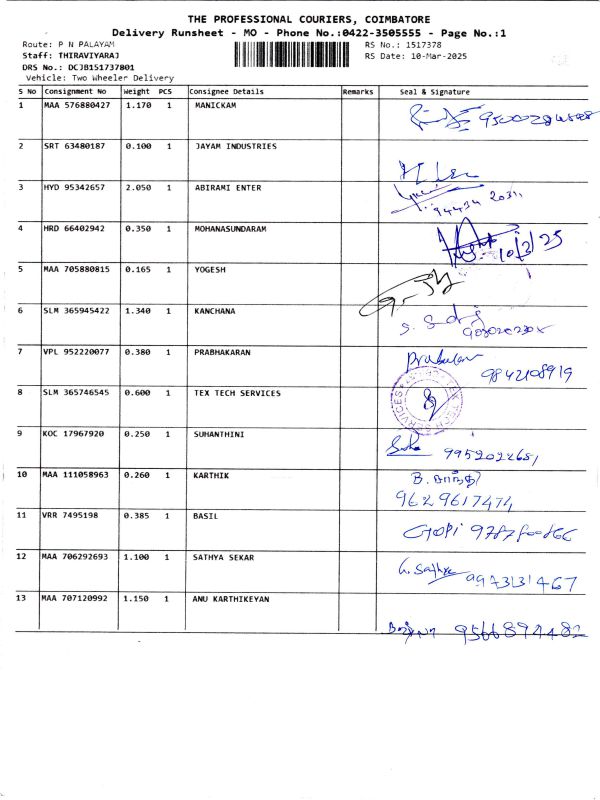 THE PROFESSIONAL COURIERS, COIMBATORE
Delivery Runsheet - MO - Phone No.:0422-3505555 - Page No.:1
Route: P N PALAYAM RS No.: 1517378
Staff: THIRAVIYARAJ RS Date: 10-Mar-2025
DRS No.: DCJB151737801
Vehicle: Two Wheeler Delivery
S No Consignment No Weight PCS Consignee Details Remarks Seal & Signature
1 MAA 576880427 1.170 1 MANICKAM
2 SRT 63480187 0.100 1 JAYAM INDUSTRIES
3 HYD 95342657 2.050 1 ABIRAMI ENTER
4 HRD 66402942 0.350 1 MOHANASUNDARAM 10/3/25
5 MAA 705880815 0.165 1 YOGESH
6 SLM 365945422 1.340 1 KANCHANA
7 VPL 952220077 0.380 1 PRABHAKARAN Prabakaran
9842108919
8 SLM 365746545 0.600 1 TEX TECH SERVICES TEX TECH SERVICES
9 KOC 17967920 0.250 1 SUHANTHINI 9952022681
10 MAA 111058963 0.260 1 KARTHIK
9629617474
11 VRR 7495198 0.385 1 BASIL Gopi
12 MAA 706292693 1.100 1 SATHYA SEKAR G. Sathya 9973131467
13 MAA 707120992 1.150 1 ANU KARTHIKEYAN
9566894482